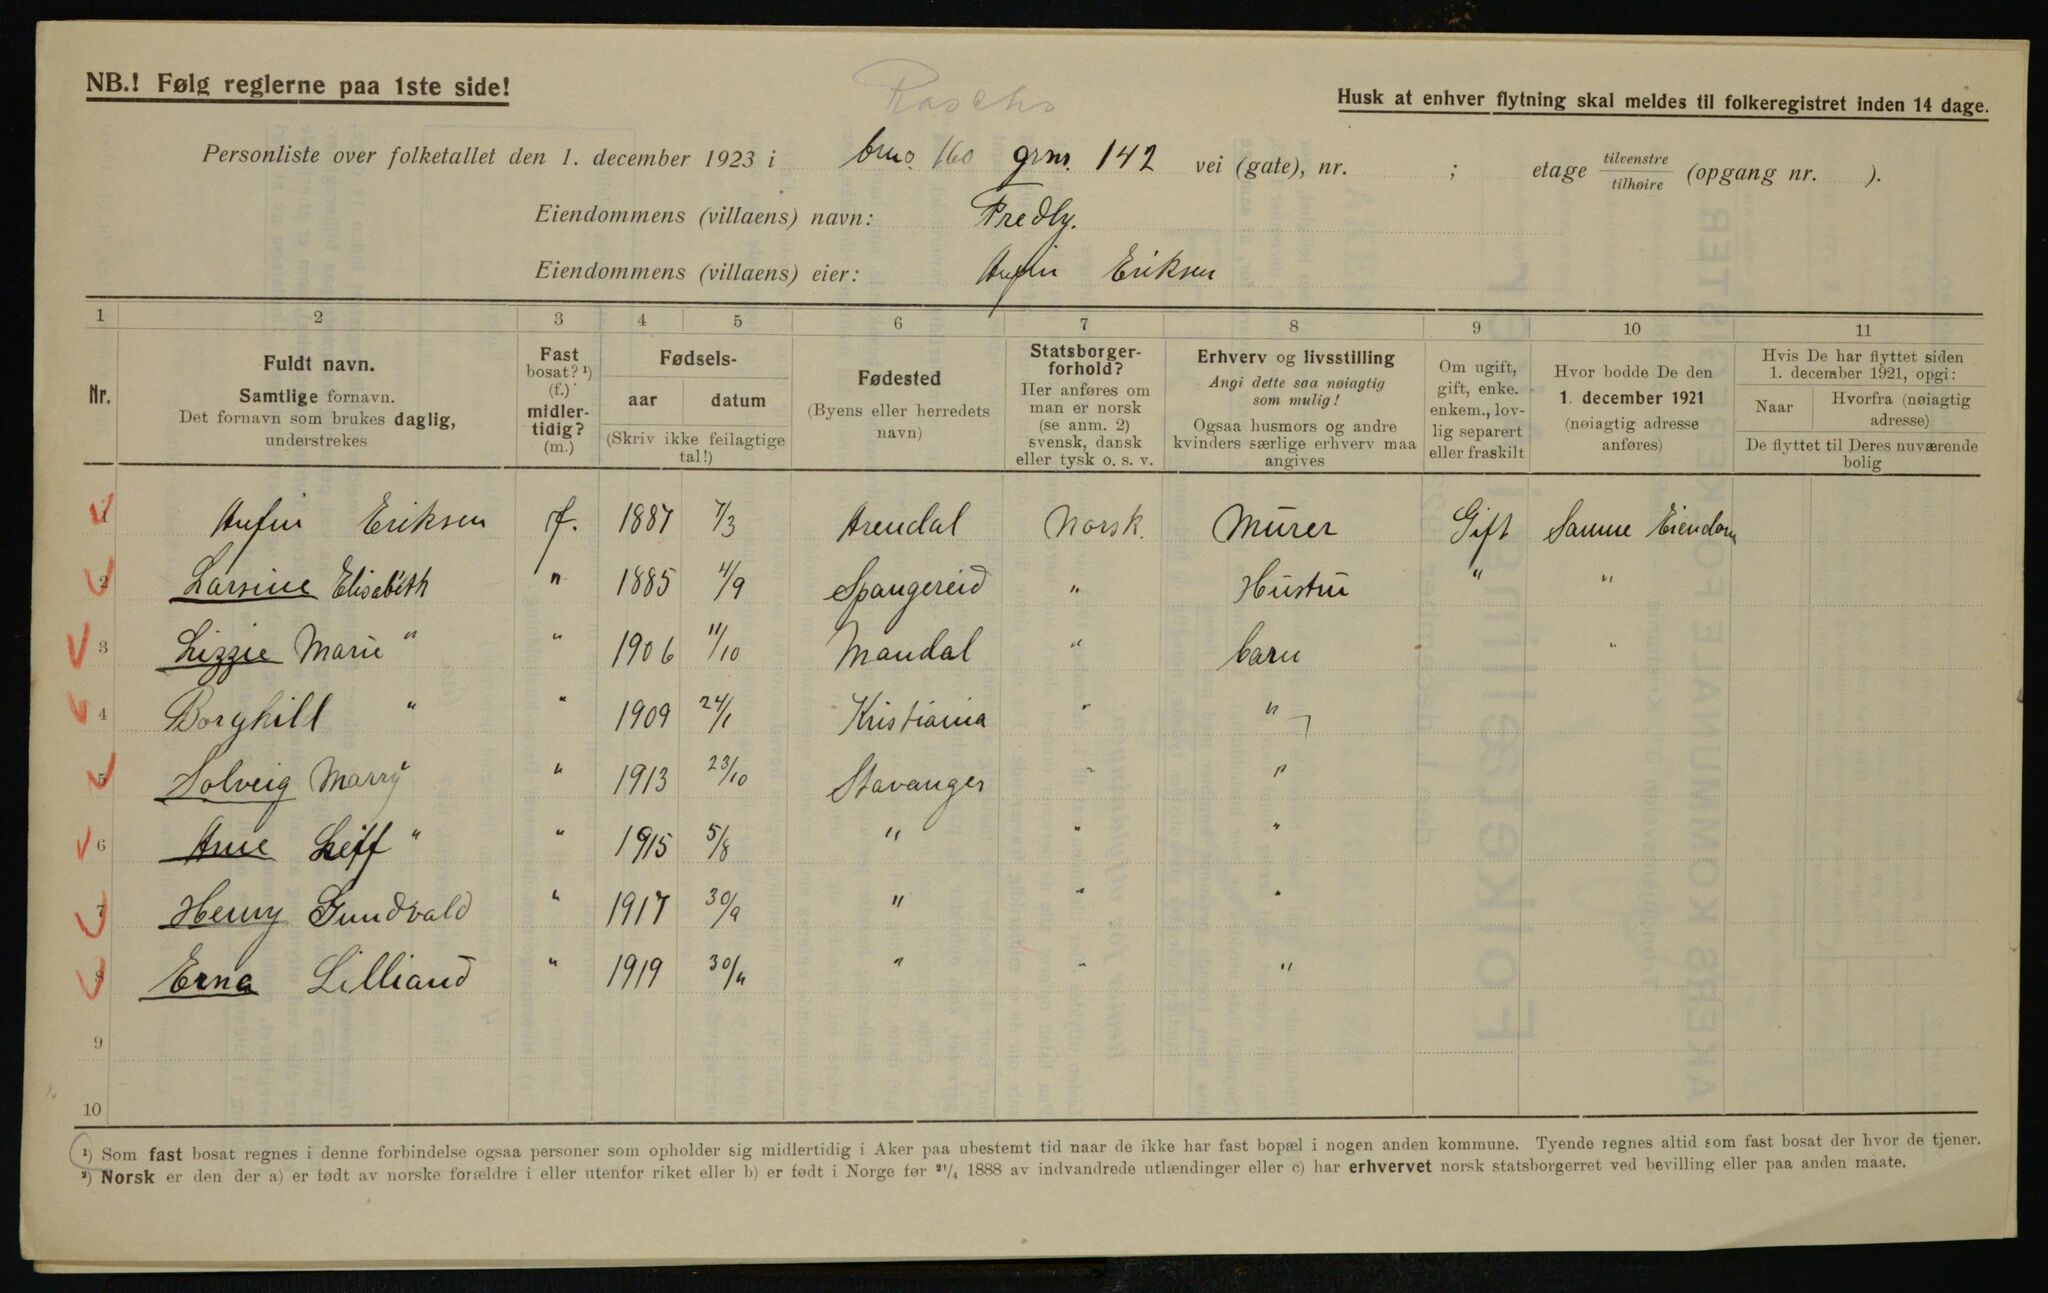 NB.! Følg reglerne paa 1ste side!
Raschs
Husk at enhver flytning skal meldes til folkeregistret inden 14 dage.
Personliste over folketallet den 1. december 1923 i bno. 160 grnr. 142 vei (gate), nr. ; etage tilvenstre tilhøire (opgang nr. ).
Eiendommens (villaens) navn: Fredly.
Eiendommens (villaens) eier: Anfin Eriksen
1 2 3 4 5 6 7 8 9 10 11
Nr.
Fuldt navn.
Samtlige fornavn.
Det fornavn som brukes daglig,
understrekes
Fast
bosat? ¹)
(f.)
midler-
tidig?
(m.)
Fødsels-
aar datum
(Skriv ikke feilagtige
tal!)
Fødested
(Byens eller herredets
navn)
Statsborger-
forhold?
Her anføres om
man er norsk
(se anm. 2)
svensk, dansk
eller tysk o. s. v.
Erhverv og livsstilling
Angi dette saa nøiagtig
som mulig!
Ogsaa husmors og andre
kvinders særlige erhverv maa
angives
Om ugift,
gift, enke.
enkem., lov-
lig separert
eller fraskilt
Hvor bodde De den
1. december 1921
(nøiagtig adresse
anføres)
Hvis De har flyttet siden
1. december 1921, opgi:
Naar Hvorfra (nøiagtig
adresse)
De flyttet til Deres nuværende
bolig
1 Anfin Eriksen f. 1887 7/3 Arendal Norsk. Murer Gift Samme Eiendom
2 Larsine Elisabeth " 1885 4/9 Spangereid " Hustru " "
3 Lizzie Marie " " 1906 11/10 Mandal " barn "
4 Borghill " " 1909 24/1 Kristiania " "
5 Solveig Marry " " 1913 23/10 Stavanger " "
6 Arne Leiff " " 1915 5/8 " " "
7 Henry Gundvald " 1917 30/9 " " "
8 Erna Lilliand " 1919 30/11 " " "
9
10
¹) Som fast bosat regnes i denne forbindelse ogsaa personer som opholder sig midlertidig i Aker paa ubestemt tid naar de ikke har fast bopæl i nogen anden kommune. Tyende regnes altid som fast bosat der hvor de tjener.
²) Norsk er den der a) er født av norske forældre i eller utenfor riket eller b) er født i Norge før ²¹/₄ 1888 av indvandrede utlændinger eller c) har erhvervet norsk statsborgerret ved bevilling eller paa anden maate.